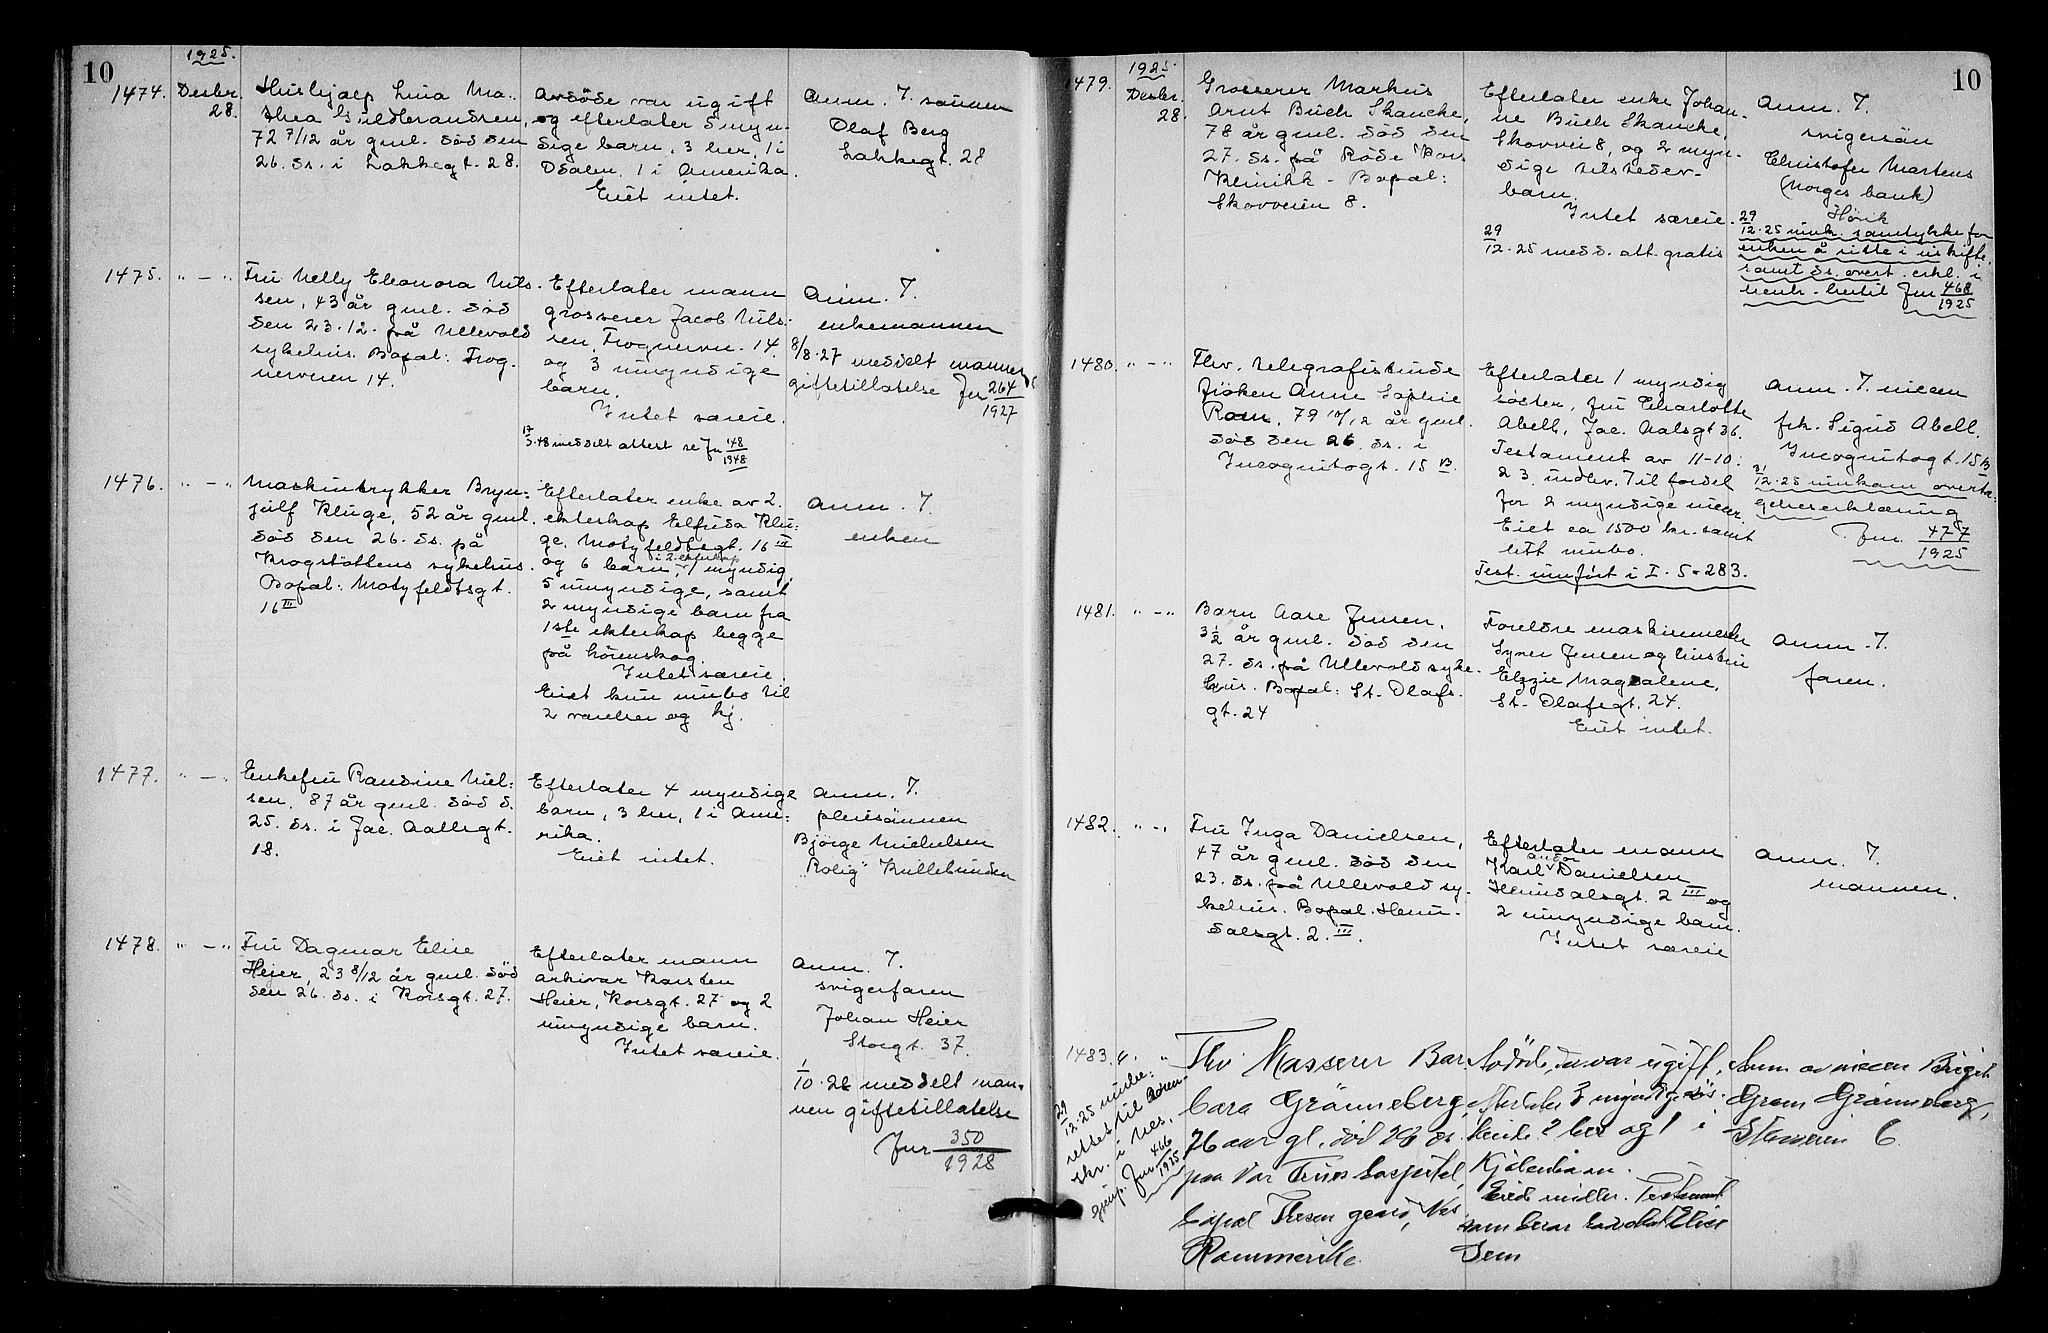 10
1925.
1474. Desbr. 28.
Hushjælp Lina Ma-
thea Guldbrandsen,
72 7/12 år gml. död den
26. ds. i Lakkegt. 28.
Avdöde var ugift
og efterlater 5 myn-
dige barn, 3 her, 1 i
Odalen, 1 i Amerika.
Eiet intet.
Anm. T. sønnen
Olaf Berg
Lakkegt. 28
1475. " — "
Fru Nelly Eleonora Nils-
sen, 43 år gml. död
den 23.12. på Ullevold
sykehus. Bopæl: Frog-
nerveien 14.
Efterlater mann
grosserer Jacob Nils-
sen, Frognervn. 14.
og 3 umyndige
barn.
Intet særeie.
17/3.48 meddelt attest se Jn 148/1948
Anm. T.
enkemannen
8/8.27 meddelt mannen
giftetillatelse Jn 264/1927
1476. " — "
Maskintrykker Bryn-
julf Kluge, 52 år gml.
död den 26. ds. på
Krogstöttens sykehus.
Bopæl: Motzfeldtsgt.
16 III
Efterlater enke av 2.
ekteskap Elfrida Klu-
ge, Motzfeldtsgt. 16 III
og 6 barn, i 2. ekteskap 1 myndig,
5 umyndige, samt
2 myndige barn fra
1ste ekteskap begge
på Lörenskog.
Intet særeie.
Eiet kun inbo til
2 værelser og kj.
Anm. T.
enken
1477. " — "
Enkefru Randine Niel-
sen, 87 år gml. död d.
25. ds. i Jac. Aallsgt.
18.
Efterlater 4 myndige
barn, 3 her, 1 i Ame-
rika.
Eiet intet.
Anm. T.
pleiesönnen
Björge Michelsen
"Rolig" Kullebunden
1478. " — "
Fru Dagmar Elise
Heier, 23 8/12 år gml. död
den 26. ds. i Korsgt. 27.
Efterlater mann
arkivar Karsten
Heier, Korsgt. 27 og 2
umyndige barn.
Intet særeie.
Anm. T.
svigerfaren
Johan Heier
Storgt. 37.
1/10.28 meddelt man-
nen giftetillatelse
Jnr 350/1928
10
1925.
1479. Desbr. 28.
Grosserer Markus
Arnt Buch Skancke,
78 år gml. död den
27. ds. på Röde Kors
Klinikk - Bopæl:
Skovveien 8.
Efterlater enke Johan-
ne Buch Skancke,
Skovvei 8, og 2 myn-
dige tilsteder-
barn.
Intet særeie.
29/12.25 medd. att. gratis
Anm. T.
svigersön
Christofer Martens
(Norges bank)
Hövik
29/12.25 innk. samtykke for
enken å sitte i uskifte,
samt ds. overt. erkl. i
Jnr 468/1925
1480. " — "
Fhv. telegrafistinde
fröken Anne Sophie
Ram, 79 10/12 år gml.
död den 26. ds. i
Incognitogt. 15 B.
Efterlater 1 myndig
söster, fru Charlotte
Abell, Jac. Aalsgt 36.
Testament av 11-10-
23. indlev. Til fordel
for 2 myndige niecer.
Eiet ca 1500 kr. samt
litt innbo.
Test. innfört i I. S. 283.
Anm. T. niecen
frk. Sigrid Abell,
Incognitogt. 15 B
31/12.25 innkom overta-
gelseserklæring
Jnr. 477/1925
1481. " — "
Barn Aase Jensen,
3 1/2 år gml. död den
27. ds. på Ullevold syke-
hus. Bopæl: St. Olafs-
gt. 24
Foreldre maskinmester
Syver Jensen og hustru
Elzzie Magdalene,
St. Olafsgt. 24.
Eiet intet.
Anm. T.
faren.
1482. " — "
Fru Inga Danielsen,
47 år gml. död den
23. ds. på Ullevold sy-
kehus. Bopæl. Hem-
dalsgt. 2. III.
Efterlater mann
Karl Anton Danielsen
Hemsdalsgt. 2 III og
2 umyndige barn.
Intet særeie
Anm. T.
mannen.
1483. "
29/12.25 innbe-
rettet til Soren-
skr. i Nes,
Jnr 466/1925
Fhv Masserer Bar-
bara Grönneberg,
76 aar gl. död 23 ds.
paa Vor Frues hospital,
bopæl Thesen gaard, Nes
Rommerike.
Avdöde, der var ugift,
efterlater 3 myndige sös-
kende 2 her og 1 i
Kjöbenhavn.
Eied midler. Testament
Anm av niecen Birgit
Gram Grönneberg,